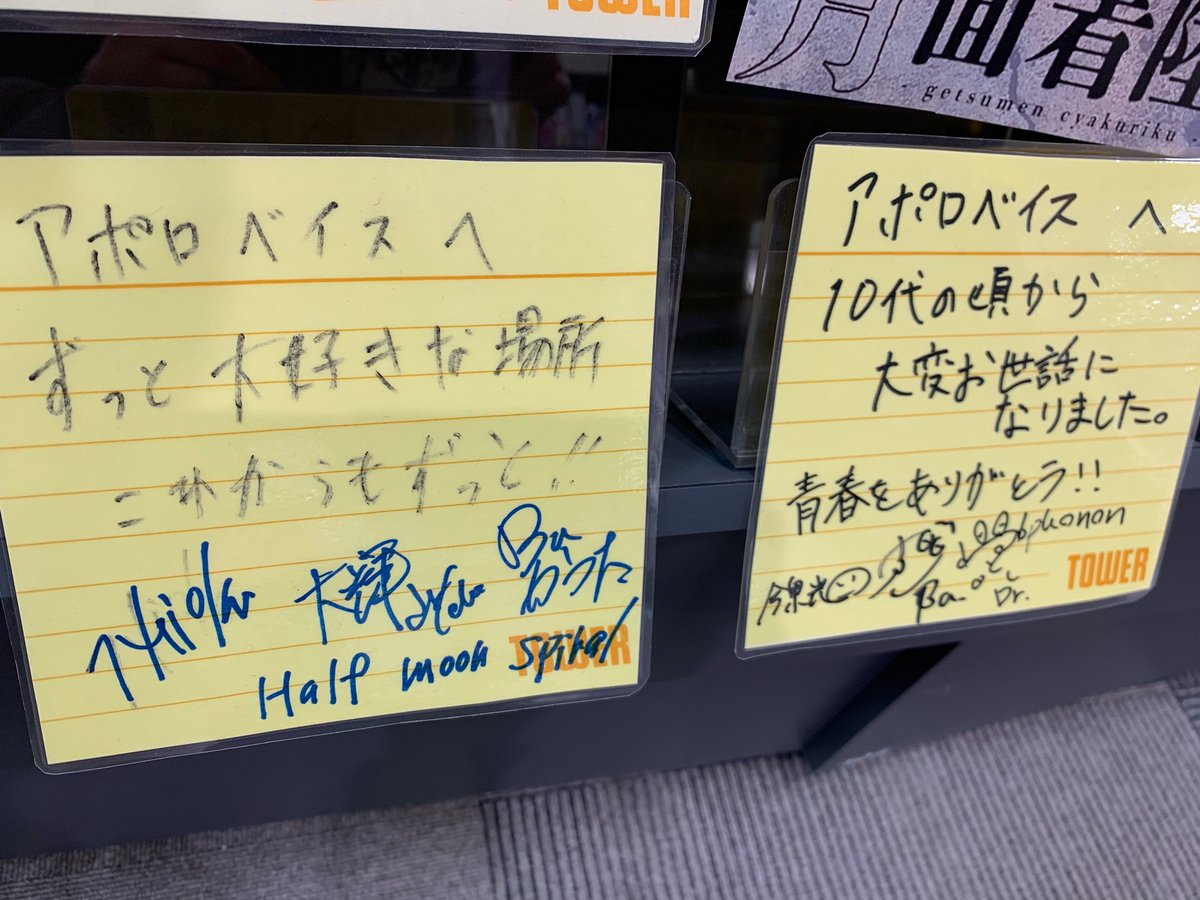 TOWER
月面着陸
- getsumen cyakuriku -
アポロベイスへ
ずっと大好きな場所
これからもずっと!!
大輝
Half moon spiral
TOWER
アポロベイス へ
10代の頃から
大変お世話に
なりました。
青春をありがとう!!
phonon
Ba. Dr.
TOWER